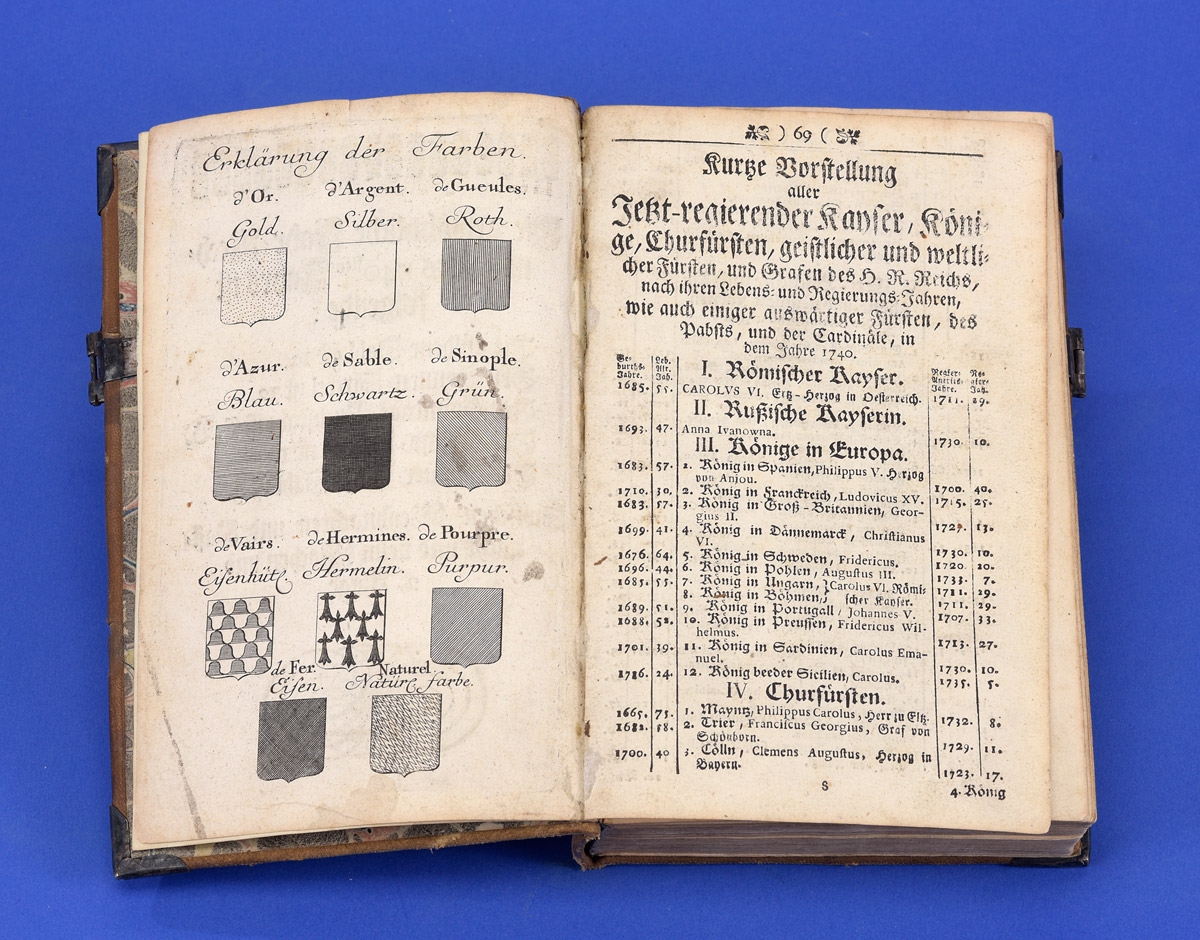 Erklärung der Farben.
d'Or. d'Argent. de Gueules.
Gold. Silber. Roth.
d'Azur. de Sable. de Sinople.
Blau. Schwartz. Grün.
de Vairs. de Hermines. de Pourpre.
Eisenhütl. Hermelin. Purpur.
de Fer. Naturel
Eisen. Natürl farbe.
) 69 (
Kurtze Vorstellung
aller
Jetzt-regierender Kayser, Köni-
ge, Churfürsten, geistlicher und weltli-
cher Fürsten, und Grafen des H. R. Reichs,
nach ihren Lebens- und Regierungs-Jahren,
wie auch einiger auswärtiger Fürsten, des
Pabsts, und der Cardinäle, in
dem Jahre 1740.
Ge- Leb. Regier- Re-
burths- Alt. Antrits- gier-
Jahre. Jah. Jahre. Jah.
I. Römischer Kayser.
1685. 55. CAROLVS VI. Ertz-Herzog in Oesterreich. 1711. 29.
II. Rußische Kayserin.
1693. 47. Anna Ivanowna. 1730. 10.
III. Könige in Europa.
1683. 57. 1. König in Spanien, Philippus V. Herzog
von Anjou. 1700. 40.
1710. 30. 2. König in Franckreich, Ludovicus XV. 1715. 25.
1683. 57. 3. König in Groß-Britannien, Geor-
gius II. 1727. 13.
1699. 41. 4. König in Dännemarck, Christianus
VI. 1730. 10.
1676. 64. 5. König in Schweden, Fridericus. 1720. 20.
1696. 44. 6. König in Pohlen, Augustus III. 1733. 7.
1685. 55. 7. König in Ungarn, } Carolus VI. Römi- 1711. 29.
8. König in Böhmen, } scher Kayser. 1711. 29.
1689. 51. 9. König in Portugall, Johannes V. 1707. 33.
1688. 52. 10. König in Preussen, Fridericus Wil-
helmus. 1713. 27.
1701. 39. 11. König in Sardinien, Carolus Ema-
nuel. 1730. 10.
1716. 24. 12. König beeder Sicilien, Carolus. 1735. 5.
IV. Churfürsten.
1665. 75. 1. Mayntz, Philippus Carolus, Herr zu Eltz. 1732. 8.
1682. 58. 2. Trier, Franciscus Georgius, Graf von
Schönborn. 1729. 11.
1700. 40 3. Cölln, Clemens Augustus, Herzog in
Bayern. 1723. 17.
S 4. König